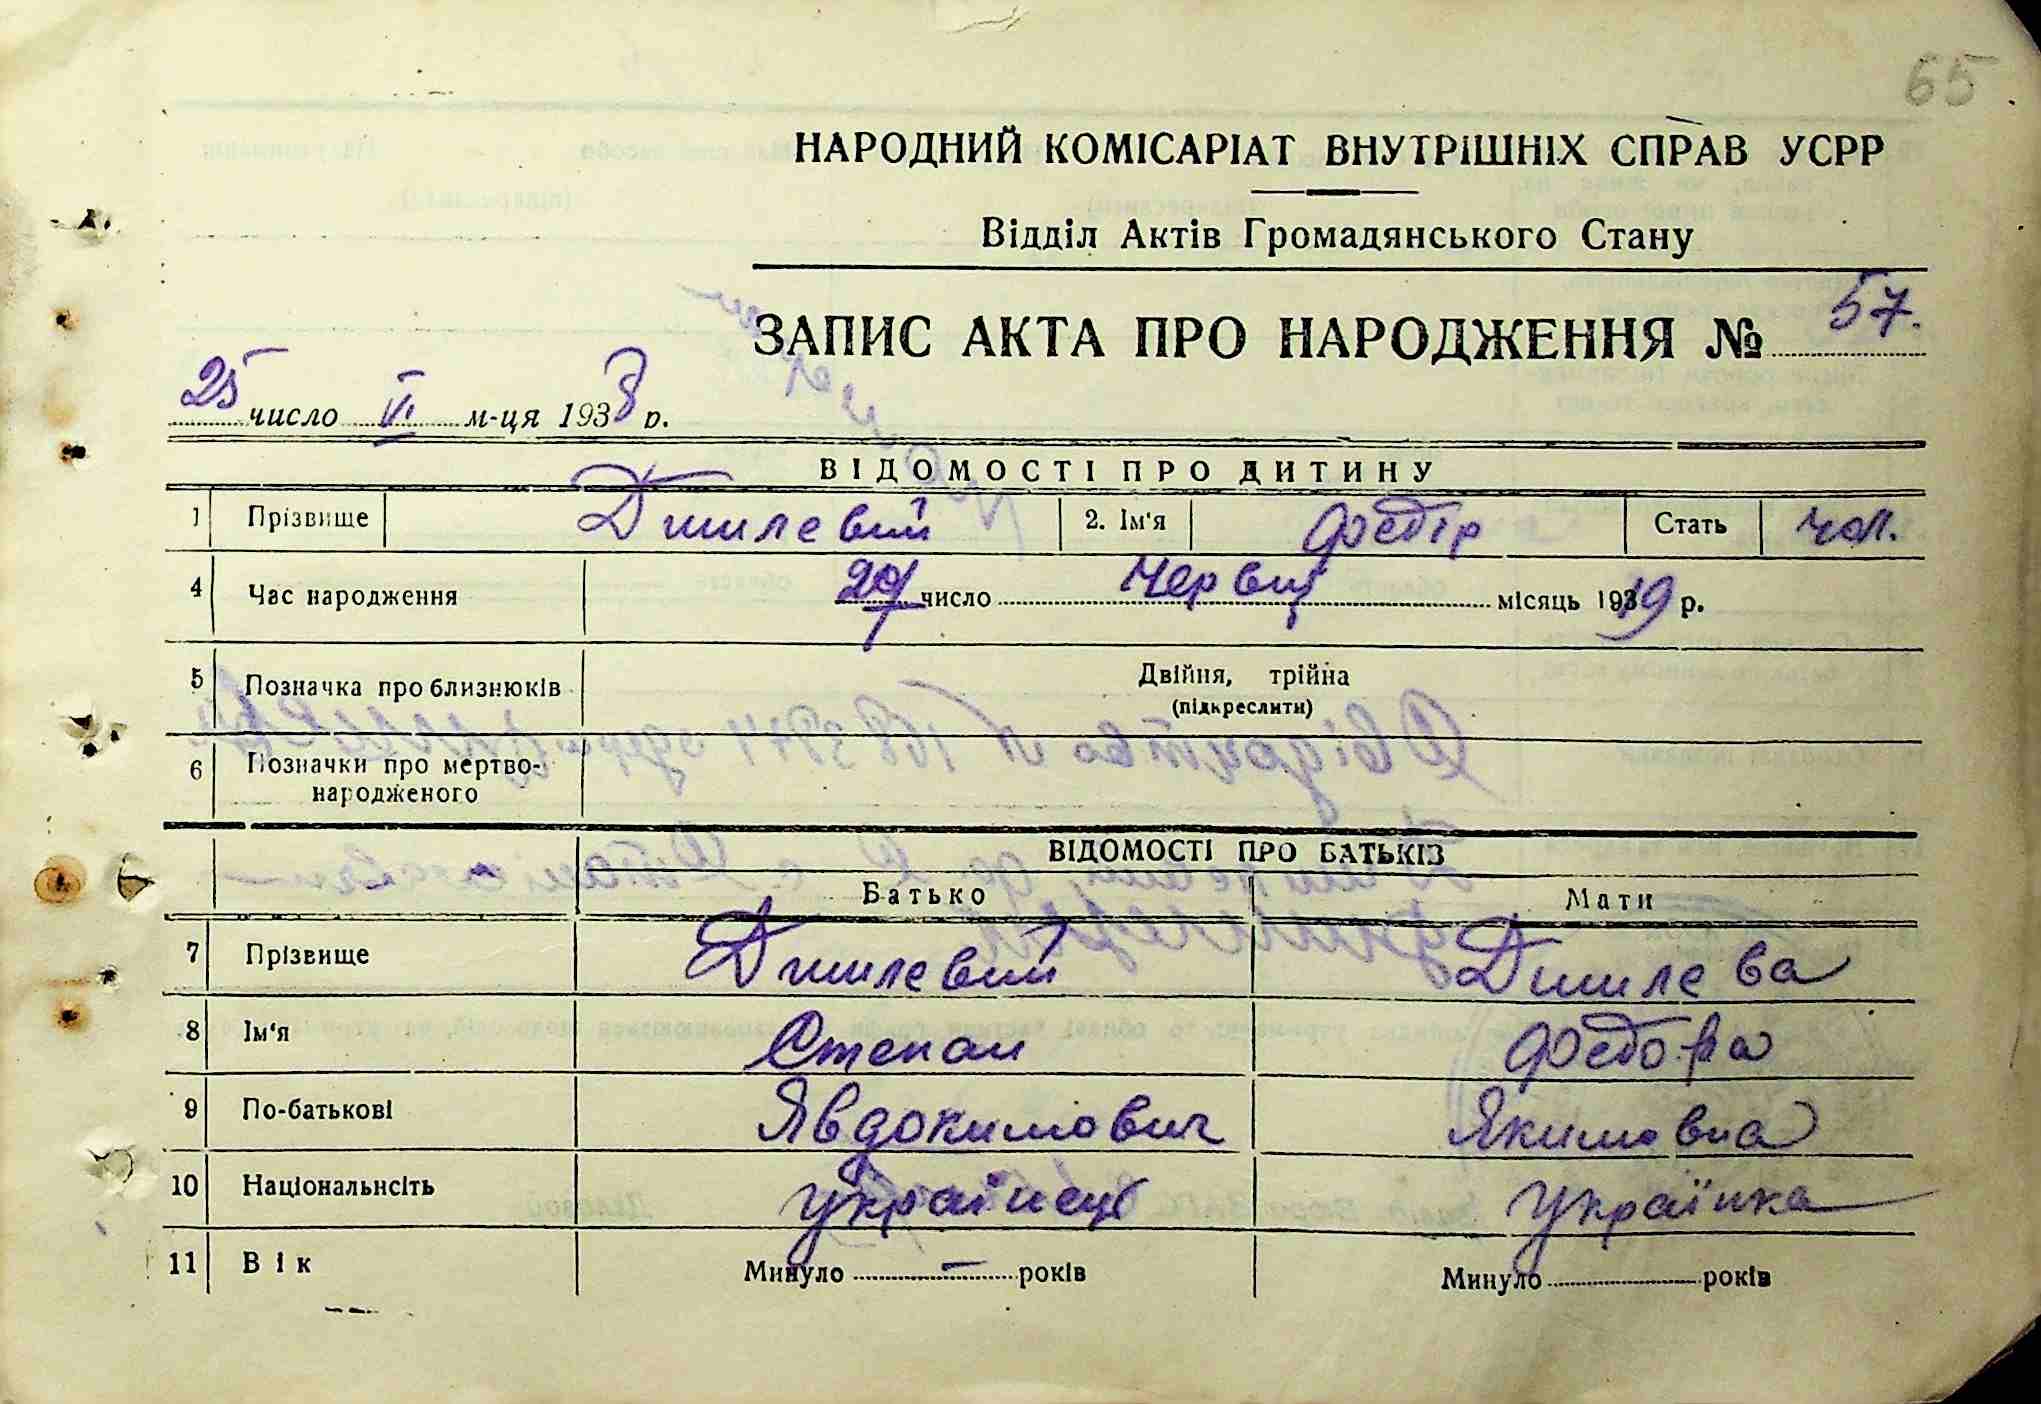 65
НАРОДНИЙ КОМІСАРІАТ ВНУТРІШНІХ СПРАВ УСРР
Відділ Актів Громадянського Стану
ЗАПИС АКТА ПРО НАРОДЖЕННЯ № 57.
25 число VI м-ця 1938 р.
ВІДОМОСТІ ПРО ДИТИНУ
1 Прізвище Дишлевий 2. Ім'я Федір Стать чол.
4 Час народження число Червц місяць 1919 р.
5 Позначка про близнюків Двійня, трійна
(підкреслити)
6 Позначки про мертво-
народженого
ВІДОМОСТІ ПРО БАТЬКІВ
Батько Мати
7 Прізвище Дишлевий Дишлева
8 Ім'я Степан Федора
9 По-батькові Явдокимович Якимовна
10 Національнсіть Українець Українка
11 Вік Минуло — років Минуло років